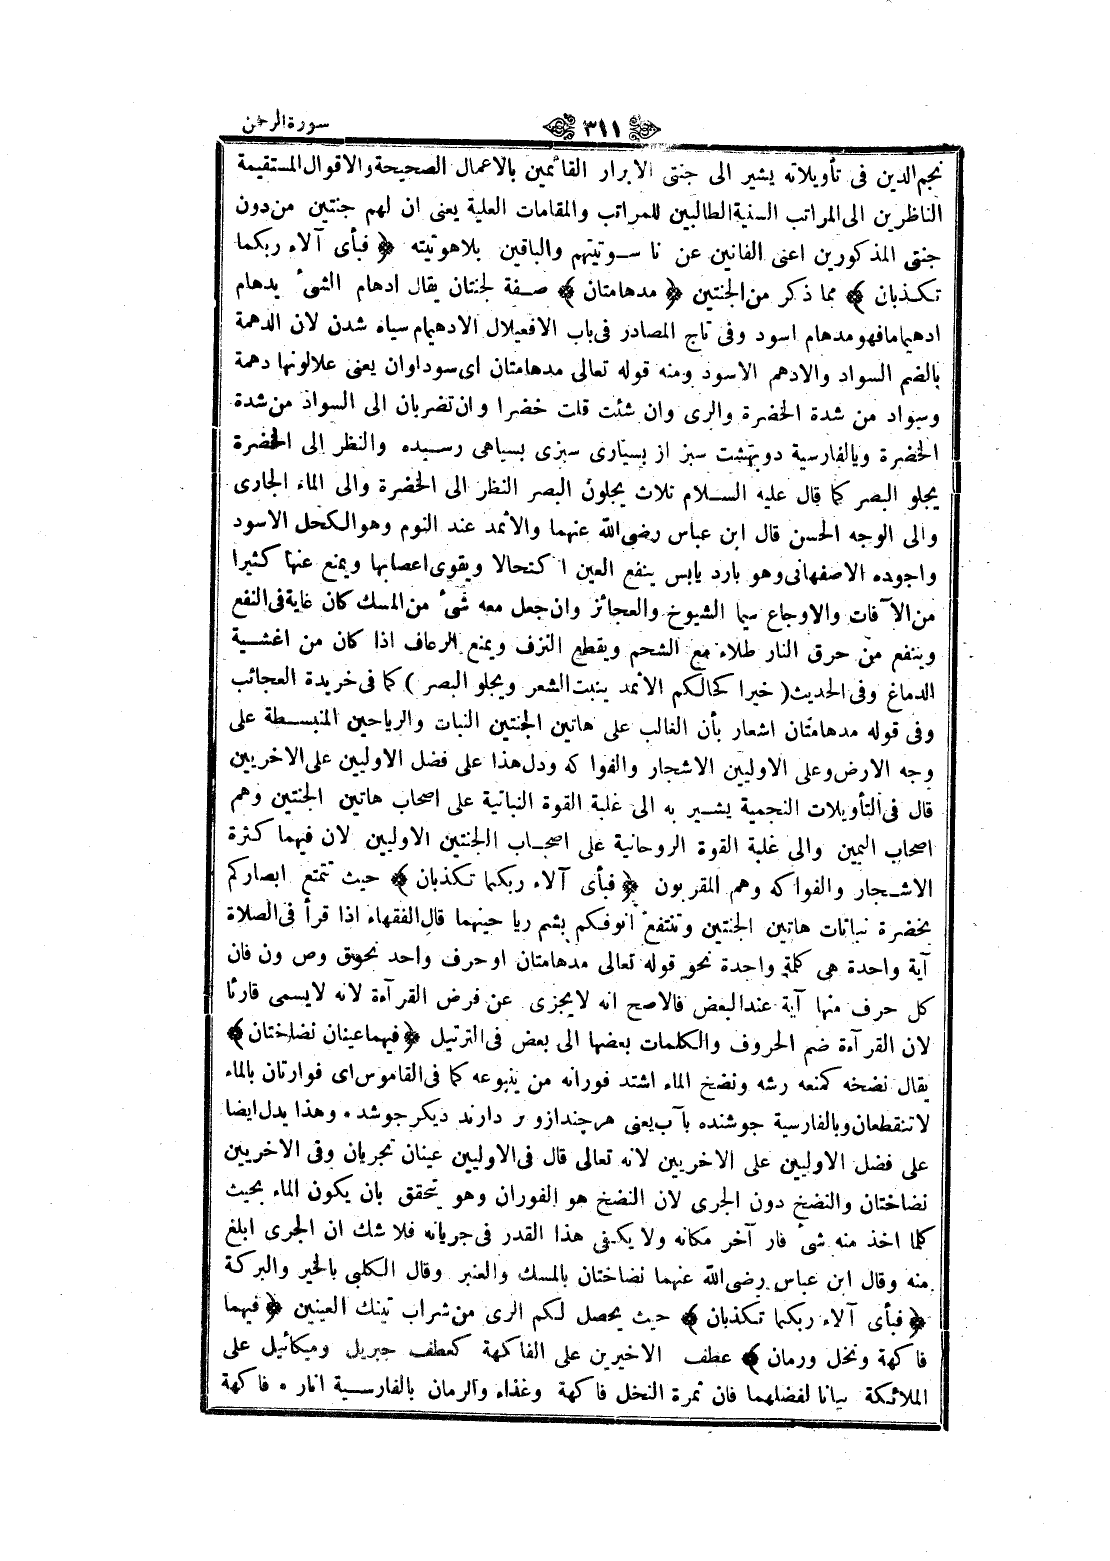 سورة الرحمن
٣١١
نجم الدين فى تأويلاته يشير الى جنتى الابرار القائمين بالاعمال الصحيحة والاقوال المستقيمة
الناظرين الى المراتب السنية الطالبين للمراتب والمقامات العلية يعنى ان لهم جنتين من دون
جنتى المذكورين اعنى الفانين عن ناسوتيتهم والباقين بلاهوتيته ﴿ فبأى آلاء ربكما
تكذبان ﴾ مما ذكر من الجنتين ﴿ مدهامتان ﴾ صفة لجنتان يقال ادهام الشئ يدهام
ادهيماما فهو مدهام اسود وفى تاج المصادر فى باب الافعيلال الادهيمام سياه شدن لان الدهمة
بالضم السواد والادهم الاسود ومنه قوله تعالى مدهامتان اى سوداوان يعنى علا لونها دهمة
وسواد من شدة الخضرة والرى وان شئت قلت خضرا وان تضربان الى السواد من شدة
الخضرة وبالفارسية دو بهشت سبز از بسيارى سبزى بسياهى رسيده والنظر الى الخضرة
يجلو البصر كما قال عليه السلام ثلاث يجلون البصر النظر الى الخضرة والى الماء الجارى
والى الوجه الحسن قال ابن عباس رضى الله عنهما والاثمد عند النوم وهو الكحل الاسود
واجوده الاصفهانى وهو بارد يابس ينفع العين اكتحالا ويقوى اعصابها ويمنع عنها كثيرا
من الآفات والاوجاع سيما الشيوخ والعجائز وان جعل معه شئ من المسك كان غاية فى النفع
وينفع من حرق النار طلاء مع الشحم ويقطع النزف ويمنع الرعاف اذا كان من اغشية
الدماغ وفى الحديث ( خيرا كحالكم الاثمد ينبت الشعر ويجلو البصر ) كما فى خريدة العجائب
وفى قوله مدهامتان اشعار بأن الغالب على هاتين الجنتين النبات والرياحين المنبسطة على
وجه الارض وعلى الاوليين الاشجار والفواكه ودل هذا على فضل الاوليين على الاخريين
قال فى التأويلات النجمية يشير به الى غلبة القوة النباتية على اصحاب هاتين الجنتين وهم
اصحاب اليمين والى غلبة القوة الروحانية على اصحاب الجنتين الاوليين لان فيهما كثرة
الاشجار والفواكه وهم المقربون ﴿ فبأى آلاء ربكما تكذبان ﴾ حيث تتمتع ابصاركم
بخضرة نباتات هاتين الجنتين وتنتفع انوفكم بشم رياحينهما قال الفقهاء اذا قرأ فى الصلاة
آية واحدة هى كلمة واحدة نحو قوله تعالى مدهامتان او حرف واحد نحو ق وص ون فان
كل حرف منها آية عند البعض فالاصح انه لايجزى عن فرض القرآءة لانه لايسمى قارئا
لان القرآءة ضم الحروف والكلمات بعضها الى بعض فى الترتيل ﴿ فيهما عينان نضاختان ﴾
يقال نضخه كمنعه رشه ونضخ الماء اشتد فورانه من ينبوعه كما فى القاموس اى فوارتان بالماء
لاتنقطعان وبالفارسية جوشنده بآب يعنى هر جند ازو بر دارند ديكر جوشد • وهذا يدل ايضا
على فضل الاوليين على الاخريين لانه تعالى قال فى الاوليين عينان تجريان وفى الاخريين
نضاختان والنضخ دون الجرى لان النضخ هو الفوران وهو يتحقق بان يكون الماء بحيث
كلما اخذ منه شئ فار آخر مكانه ولا يكفى هذا القدر فى جريانه فلا شك ان الجرى ابلغ
منه وقال ابن عباس رضى الله عنهما نضاختان بالمسك والعنبر وقال الكلبى بالخير والبركة
﴿ فبأى آلاء ربكما تكذبان ﴾ حيث يحصل لكم الرى من شراب تينك العينين ﴿ فيهما
فاكهة ونخل ورمان ﴾ عطف الاخيرين على الفاكهة كعطف جبريل وميكائيل على
الملائكة بيانا لفضلهما فان ثمرة النخل فاكهة وغذاء والرمان بالفارسية انار • فاكهة